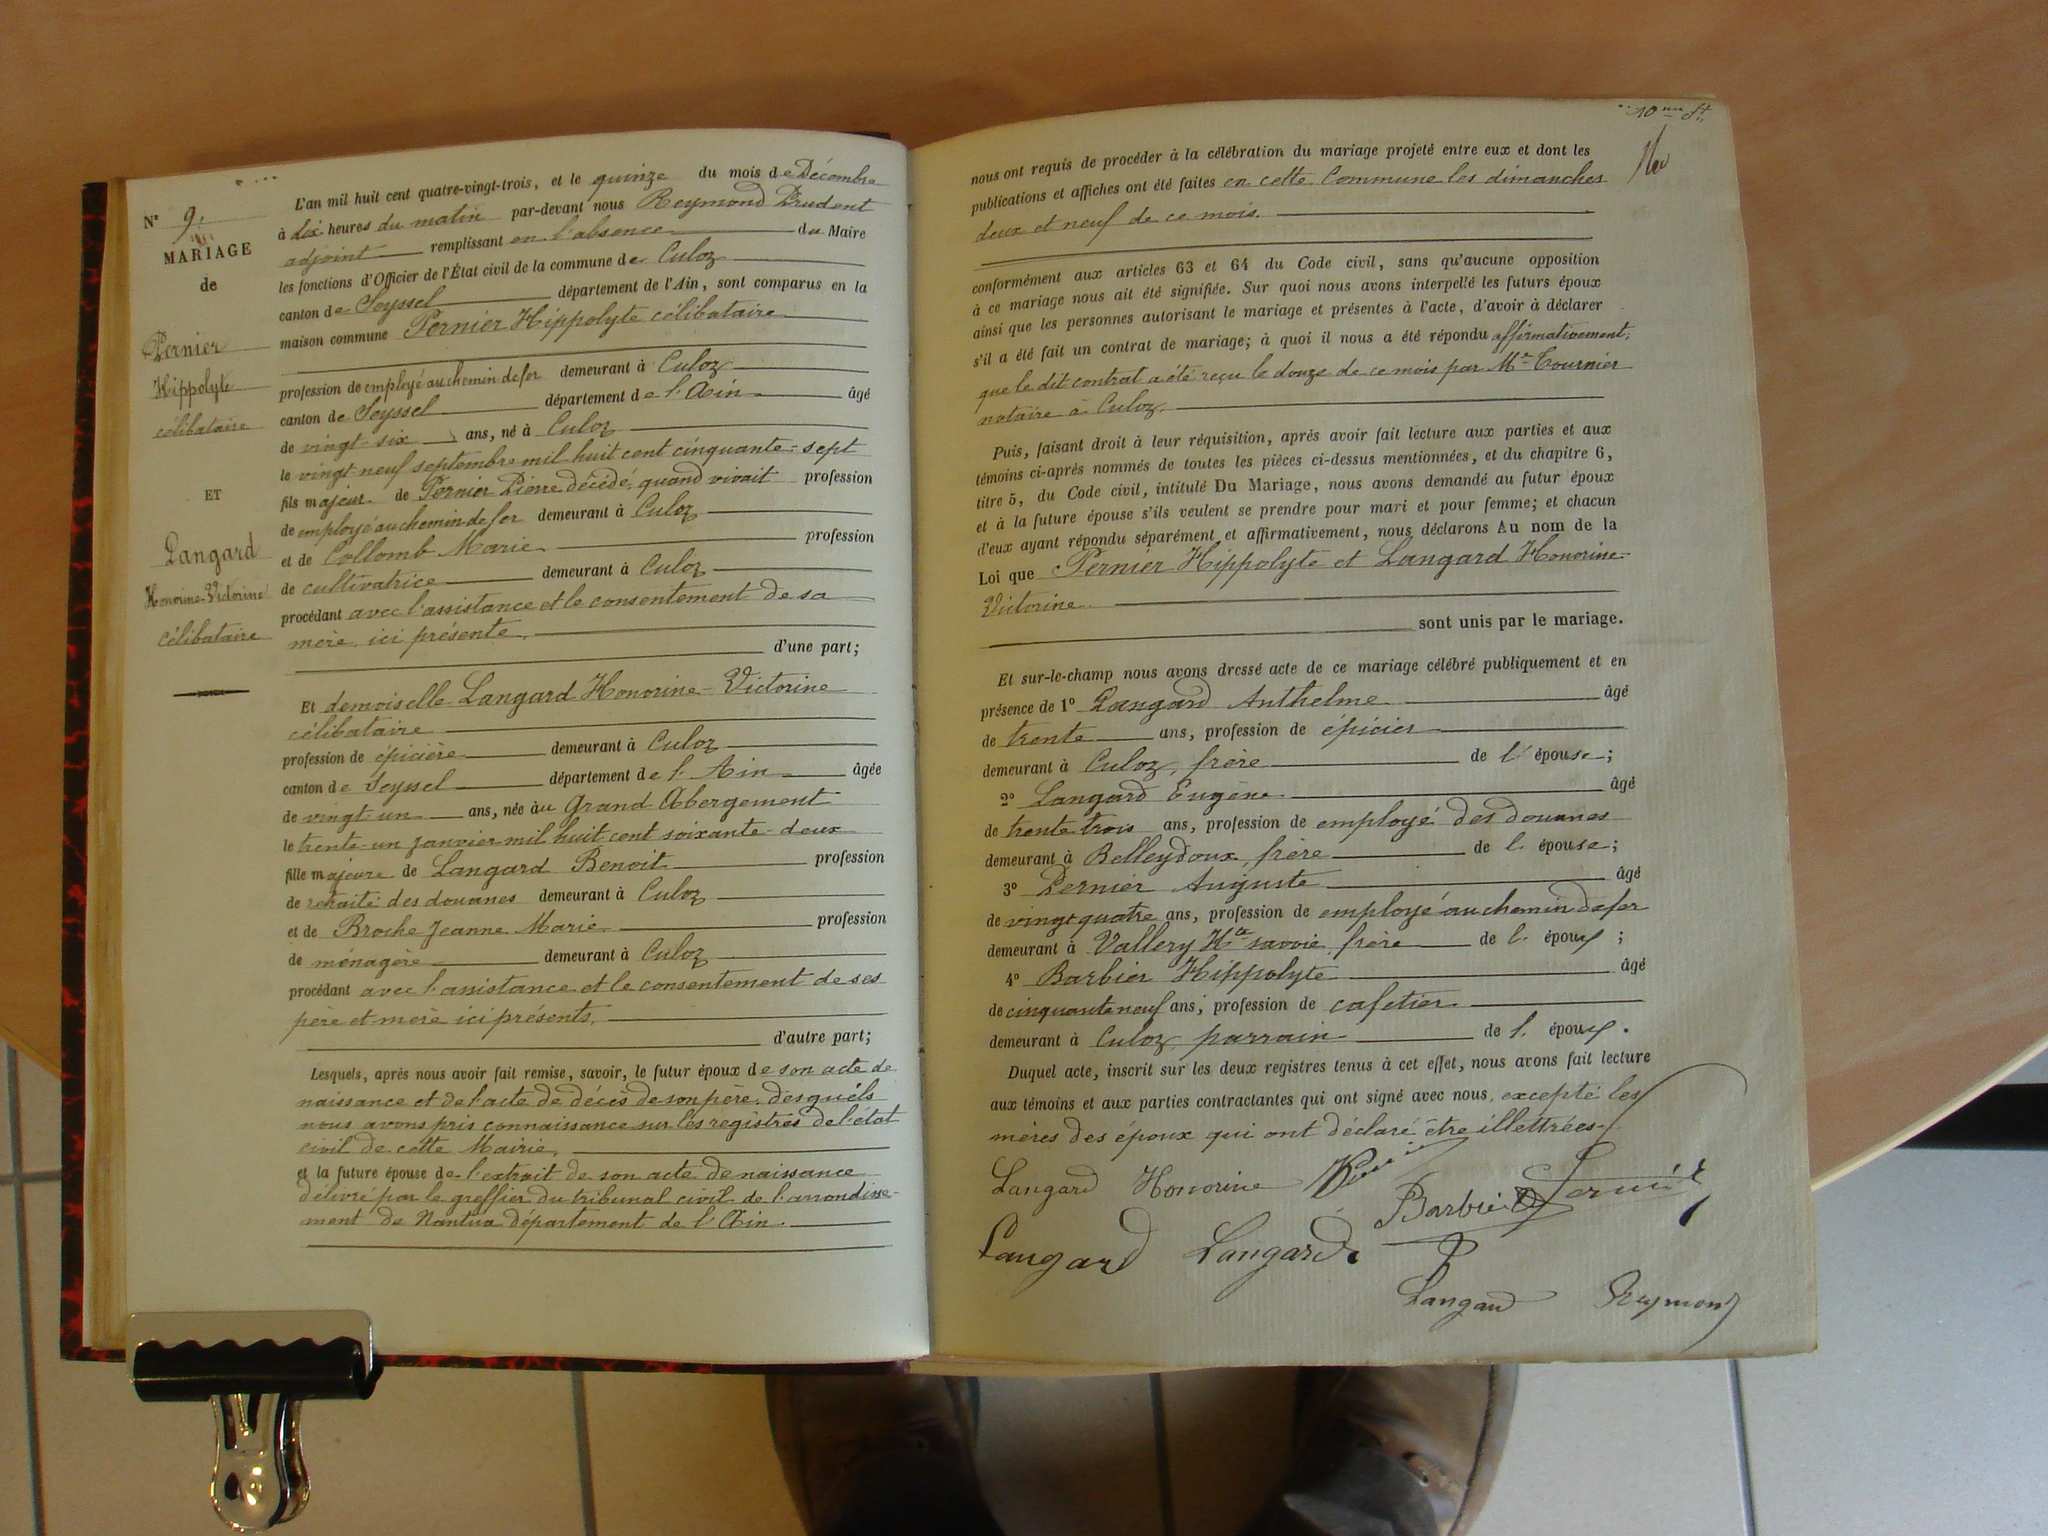 N° 9.
MARIAGE
de
Pernier
Hippolyte
célibataire
ET
Langard
Honorine-Victorine
célibataire
L'an mil huit cent quatre-vingt-trois, et le quinze du mois de Décembre
à dix heures du matin par-devant nous Reymond Prudent
adjoint remplissant en l'absence du Maire
les fonctions d'Officier de l'État civil de la commune de Culoz
canton de Seyssel département de l'Ain, sont comparus en la
maison commune Pernier Hippolyte célibataire
profession de employé au chemin de fer demeurant à Culoz
canton de Seyssel département de l'Ain âgé
de vingt-six ans, né à Culoz
le vingt neuf septembre mil huit cent cinquante-sept
fils majeur de Pernier Pierre décédé, quand vivait profession
de employé au chemin de fer demeurant à Culoz
et de Collomb Marie profession
de cultivatrice demeurant à Culoz
procédant avec l'assistance et le consentement de sa
mère ici présente, d'une part;
Et demoiselle Langard Honorine-Victorine
célibataire
profession de épicière demeurant à Culoz
canton de Seyssel département de l'Ain âgée
de vingt-un ans, née àu Grand Abergement
le trente-un janvier mil huit cent soixante-deux
fille majeure de Langard Benoit profession
de retraité des douanes demeurant à Culoz
et de Broche Jeanne Marie profession
de ménagère demeurant à Culoz
procédant avec l'assistance et le consentement de ses
père et mère ici présents, d'autre part;
Lesquels, après nous avoir fait remise, savoir, le futur époux de son acte de
naissance et de l'acte de décès de son père, desquels
nous avons pris connaissance sur les registres de l'état
civil de cette Mairie,
et la future épouse de l'extrait de son acte de naissance
délivré par le greffier du tribunal civil de l'arrondisse-
ment de Nantua département de l'Ain.
nous ont requis de procéder à la célébration du mariage projeté entre eux et dont les
publications et affiches ont été faites en cette Commune les dimanches
deux et neuf de ce mois.
conformément aux articles 63 et 64 du Code civil, sans qu'aucune opposition
à ce mariage nous ait été signifiée. Sur quoi nous avons interpellé les futurs époux
ainsi que les personnes autorisant le mariage et présentes à l'acte, d'avoir à déclarer
s'il a été fait un contrat de mariage; à quoi il nous a été répondu affirmativement,
que le dit contrat a été reçu le douze de ce mois par Me Tournier
notaire à Culoz.
Puis, faisant droit à leur réquisition, après avoir fait lecture aux parties et aux
témoins ci-après nommés de toutes les pièces ci-dessus mentionnées, et du chapitre 6,
titre 5, du Code civil, intitulé Du Mariage, nous avons demandé au futur époux
et à la future épouse s'ils veulent se prendre pour mari et pour femme; et chacun
d'eux ayant répondu séparément et affirmativement, nous déclarons Au nom de la
Loi que Pernier Hippolyte et Langard Honorine-
Victorine
sont unis par le mariage.
Et sur-le-champ nous avons dressé acte de ce mariage célébré publiquement et en
présence de 1° Langard Anthelme âgé
de trente ans, profession de épicier
demeurant à Culoz, frère de l'épouse;
2° Langard Eugène âgé
de trente trois ans, profession de employé des douanes
demeurant à Belleydoux, frère de l'épouse;
3° Pernier Auguste âgé
de vingt quatre ans, profession de employé au chemin de fer
demeurant à Vallery Hte savoie, frère de l'époux;
4° Barbier Hippolyte âgé
de cinquante neuf ans, profession de cafetier
demeurant à Culoz, parrain de l'époux.
Duquel acte, inscrit sur les deux registres tenus à cet effet, nous avons fait lecture
aux témoins et aux parties contractantes qui ont signé avec nous, excepté les
mères des époux qui ont déclaré être illettrées.
Langard Honorine Barbier Pernier
Langard Langard
Langard Reymond